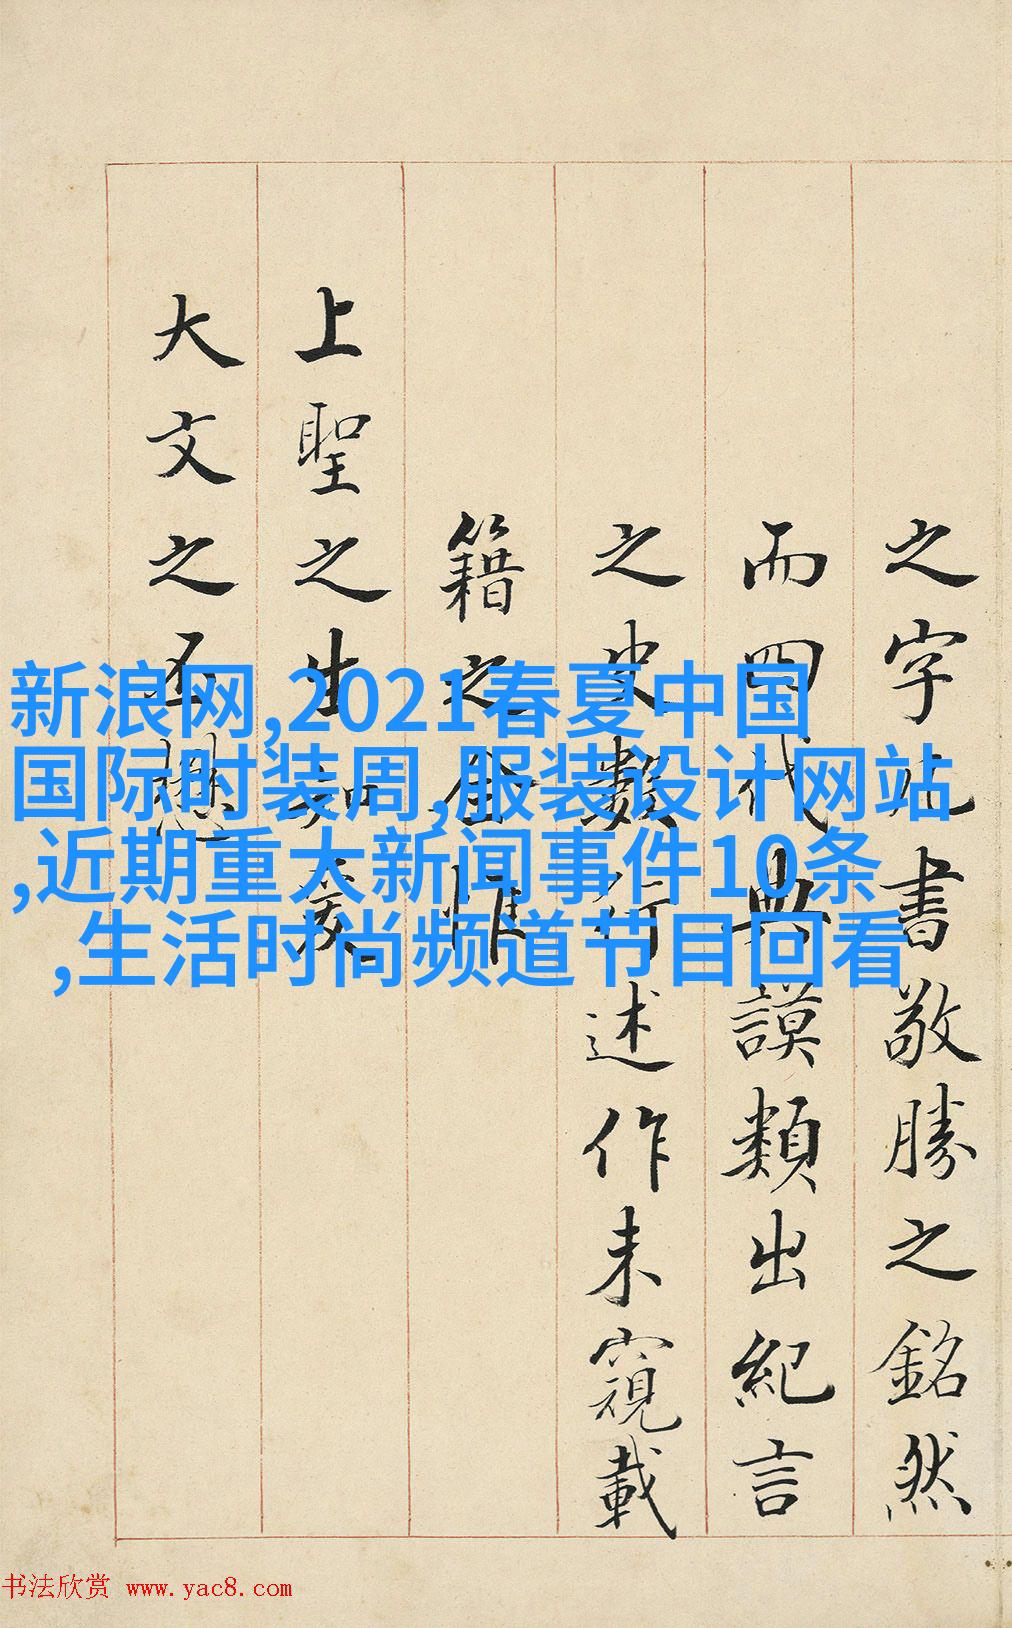 之字尤書敬勝之銘然
而四代典謨類出紀言
之史數行述作未窺載
籍之全惟
上聖之生知爰
大文之丕
新浪网,2021春夏中国
国际时装周,服装设计网站
,近期重大新闻事件10条
,生活时尚频道节目回看
书法欣赏 www.yac8.com